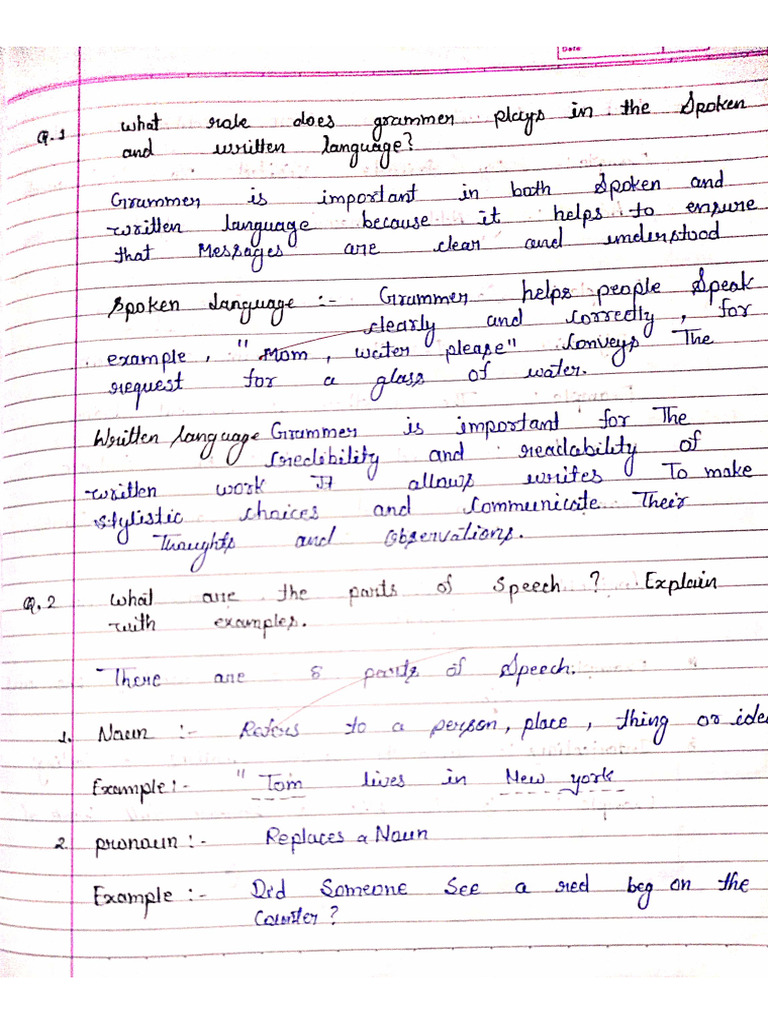 Date
Q.1 what role does grammer plays in the Spoken
and written language?
Grammer is important in both Spoken and
written language because it helps to ensure
that Messages are clear and understood
Spoken language :- Grammer helps people Speak
clearly and correctly, for
example, "Mom, water please" Conveys The
request for a glass of water.
Written language Grammer is important for The
Credibility and readability of
written work It allows writes To make
stylistic choices and communicate Their
Thoughts and Observations.
Q.2 what are the parts of Speech? Explain
with examples.
There are 8 parts of Speech.
1. Noun :- Refers to a person, place, thing or idea
Example :- "Tom lives in New york
2. pronoun :- Replaces a Noun
Example :- Did Someone See a red beg on the
Counter?